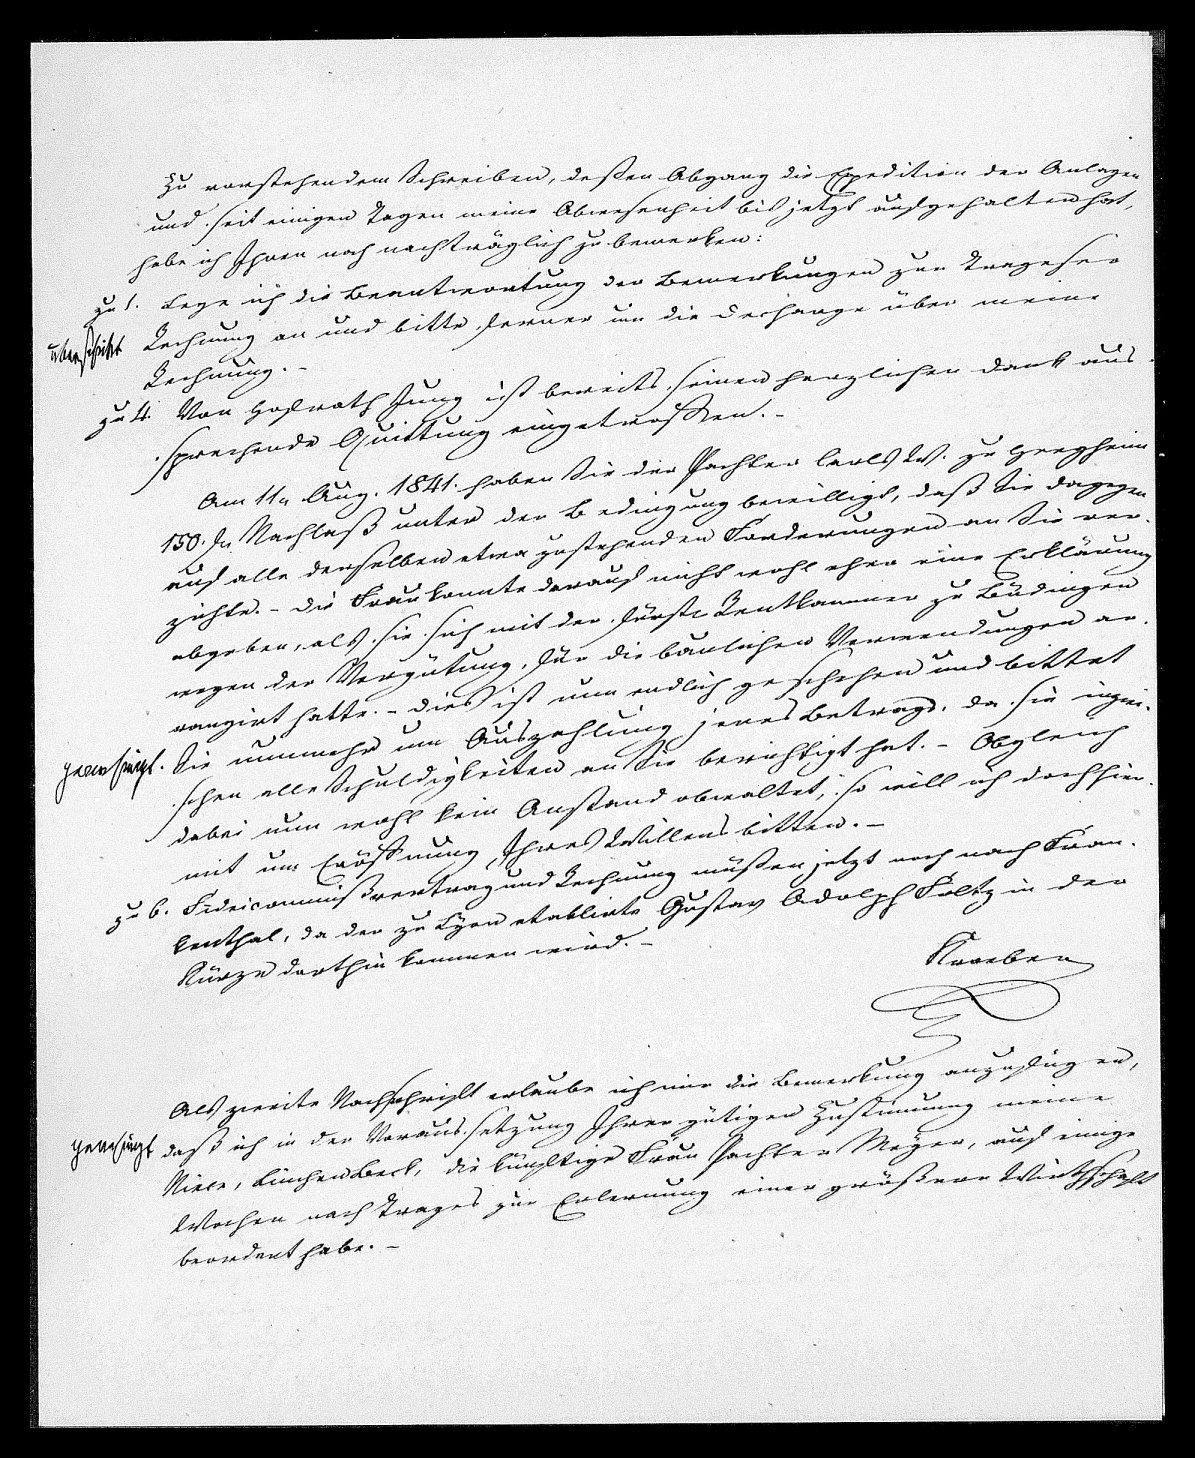 Zu vorstehendem Schreiben, deßen Abgang die Expedition der Anlagen
und seit einigen Tagen meine Abwesenheit bis jetzt aufgehalten hat,
habe ich Ihnen noch nachträglich zu bemerken:
zu 1. Lege ich die Beantwortung der Bemerkungen zur Trageser
Rechnung an und bitte ferner um die Decharge über meine
überschickt
Rechnung. -
zu 4. Von Hofrath Jung ist bereits seinen herzlichen Dank aus-
sprechende Quittung eingetroffen. -
Am 11n Aug. 1841. haben Sie der Pachter Carls W. zu
150. fl. Nachlaß unter der Bedingung bewilligt, daß Sie dagegen
auf alle derselben etwa zustehenden Forderungen an Sie ver-
zichte. - Die Frau konnte darauf nicht wohl eher eine Erklärung
abgeben, als sie sich mit der Fürstl. Rentkammer zu Büdingen
wegen der Vergütung für die baulichen Verwendungen ar-
rangirt hatte. - Dies ist nun endlich geschehen und bittet
genehmigt. Sie nunmehr um Auszahlung jenes Betrags, da sie inzwi-
schen alle Schuldigkeiten an Sie berichtigt hat. - Obgleich
dabei nun wohl kein Anstand obwaltet, so will ich doch hier-
mit um Eröffnung Ihres Willens bitten. -
zu 6. Fideicommißvertrag und Rechnung müßen jetzt noch nach Fran-
kenthal, da der zu Lyon etablirte Gustav Adolph Foltz in der
Kürze dorthin kommen wird. -
Kroeber
Als zweite Nachschrift erlaube ich mir die Bemerkung anzufügen,
genehmigt daß ich in der Voraussetzung Ihrer gütigen Zustimmung meine
Niece, Linchen Beck, die künftige Frau Pachter Meyer, auf einige
Wochen nach Trages zur Erlernung einer größern Wirthschaft
beordert habe. -